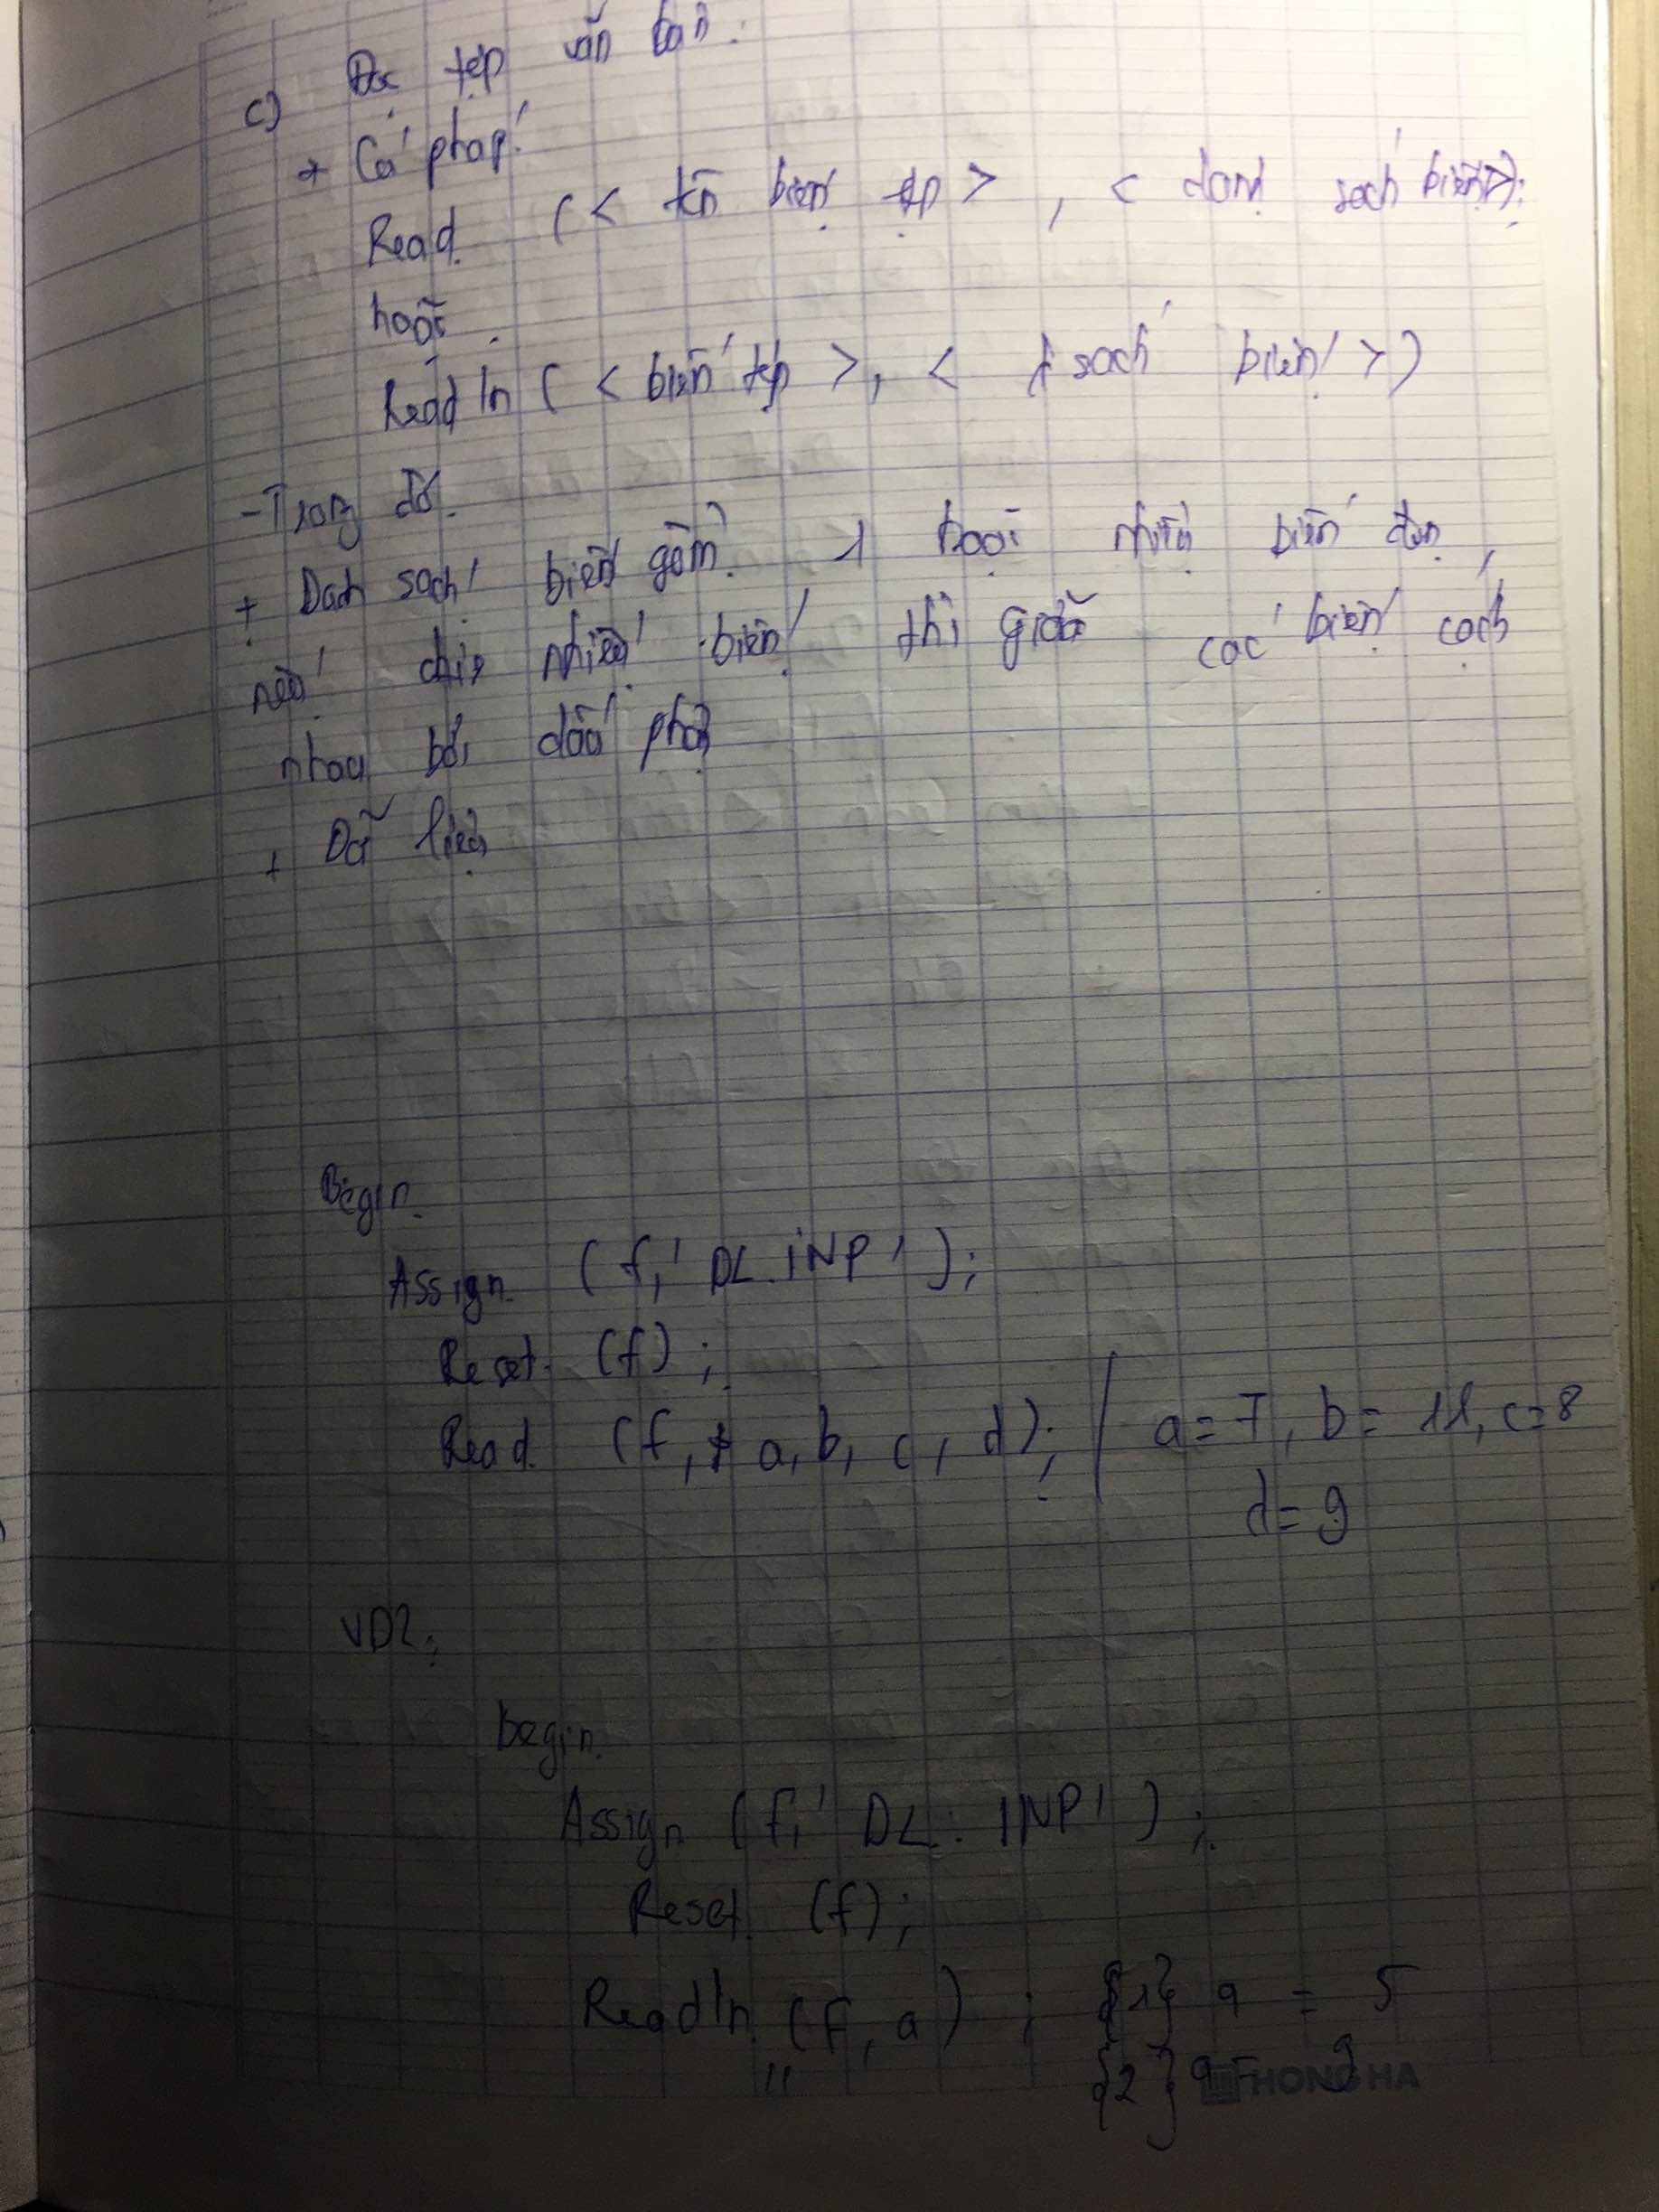 c) Đọc tệp văn bản:
+ Cú pháp:
Read (< tên biến tệp > , < danh sách biến>);
hoặc
Readln ( < biến tệp >, < sách biến > )
- Trong đó.
+ Danh sách biến gồm 1 hoặc nhiều biến đơn,
nếu nhiều biến thì giữa các biến cách
nhau bởi dấu phẩy
+ Dữ liệu
Begin
Assign (f,' DL.INP ' );
Reset (f) ;
Read (f, a, b, c, d); / a = 7, b = 11, c=8
d= 9
VD2:
begin
Assign (f,' DL. INP' ) ;
Reset (f);
Readln (f, a) ; {1} a = 5
" {2} 9
HONG HA